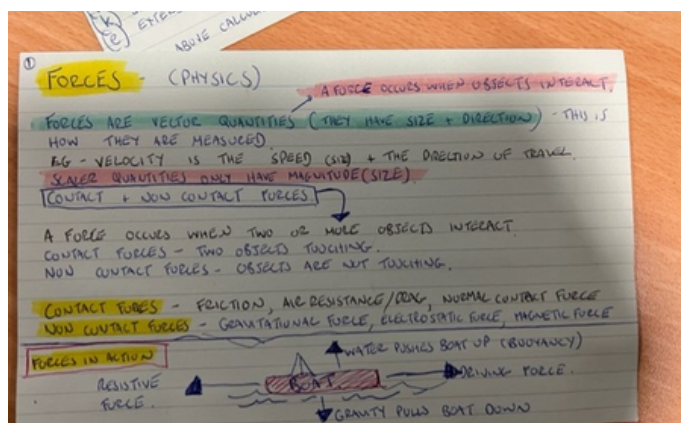 K
e EXTER
ABOVE CALCUL
1
FORCES - (PHYSICS)
A FORCE OCCURS WHEN OBJECTS INTERACT.
FORCES ARE VECTOR QUANTITIES (THEY HAVE SIZE + DIRECTION) - THIS IS
HOW THEY ARE MEASURED.
E.G - VELOCITY IS THE SPEED (SIZE) + THE DIRECTION OF TRAVEL.
SCALER QUANTITIES ONLY HAVE MAGNITUDE (SIZE)
CONTACT + NON CONTACT FORCES
A FORCE OCCURS WHEN TWO OR MORE OBJECTS INTERACT.
CONTACT FORCES - TWO OBJECTS TOUCHING.
NON CONTACT FORCES - OBJECTS ARE NOT TOUCHING.
CONTACT FORCES - FRICTION, AIR RESISTANCE/DRAG, NORMAL CONTACT FORCE
NON CONTACT FORCES - GRAVITATIONAL FORCE, ELECTROSTATIC FORCE, MAGNETIC FORCE
FORCES IN ACTION
WATER PUSHES BOAT UP (BUOYANCY)
RESISTIVE
FORCE.
BOAT
DRIVING FORCE.
GRAVITY PULLS BOAT DOWN